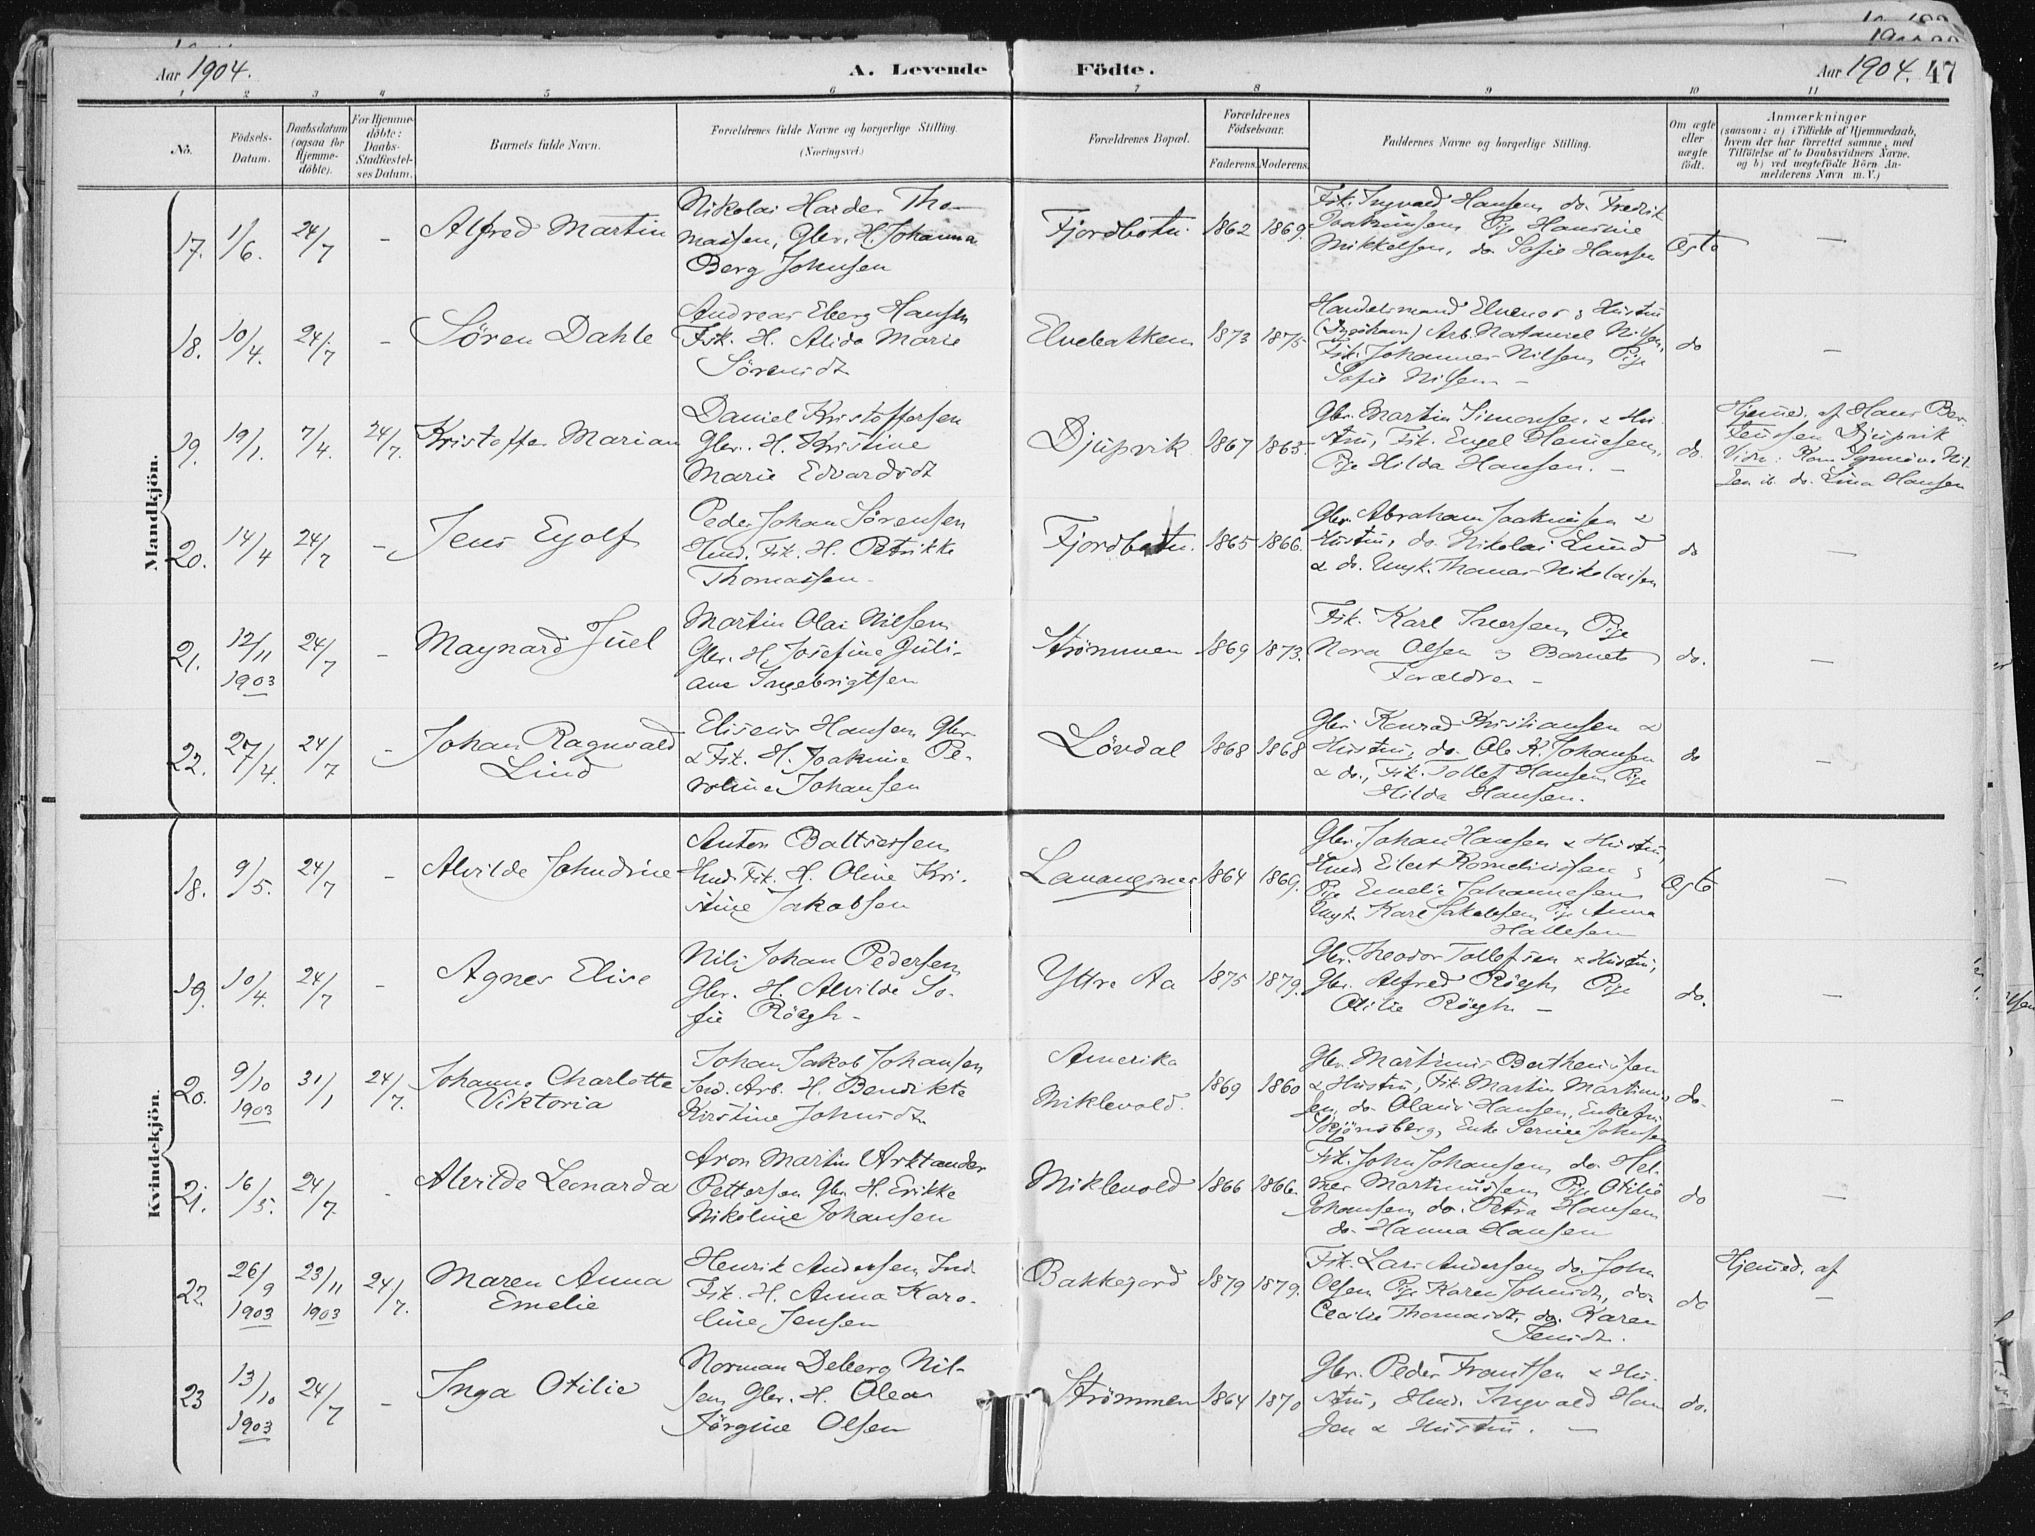 Aar 1904.
A. Levende Födte.
Aar 1904. 47
1 2 3 4 5 6 7 8 9 10 11
No.
Födsels-
Datum.
Daabsdatum
(ogsaa for
Hjemme-
döbte).
For Hjemme-
döbte:
Daabs-
Stadfæstel-
ses Datum.
Barnets fulde Navn.
Forældrenes fulde Navne og borgerlige Stilling.
(Næringsvei.)
Forældrenes Bopæl.
Forældrenes
Födselsaar.
Faderens. Moderens.
Faddernes Navne og borgerlige Stilling.
Om ægte
eller
uægte
födt.
Anmærkninger
(saasom: a) i Tilfælde af Hjemmedaab,
hvem der har forrettet samme, med
Tilföielse af to Daabsvidners Navne,
og b) ved uægtefödte Börn An-
melderens Navn m. V.)
Mandkjön.
17. 1/6. 24/7 - Alfred Martin
Nikolai Harder Tho-
massen, Gbr. H. Johanna
Berg Johnsen
Fjordbotn. 1862 1869.
Fisk. Ingvald Hansen, do. Fredrik
Joakimsen, Pige Hansine
Mikkelsen, do. Sofie Hansen
Ægte —
18. 10/4. 24/7 - Søren Dahle
Andreas Eberg Hansen
Fisk. H. Alida Marie
Sörensdt
Elvebakken 1873 1875
Handelsmand Elvenor & Hustru
Arb. Nataniel Nilsen,
Fisk. Johannes Nilsen, Pige
Sofie Nilsen —
do —
19. 19/1. 7/4. 24/7. Kristoffer Marian
Daniel Kristoffersen
Gbr. H. Kristine
Marie Edvardsdt
Djupvik 1867 1865
Gbr. Martin Simonsen & Hu-
stru, Fisk. Engel
Pige Hilda Hansen. —
do.
Hjemed. af Hans Ber-
teussen Djupvik
Vidn:
Lina Hansen
20. 14/4 24/7 - Jens Eyolf
Peder Johan Sörensen
Hmd. Fisk. H. Petrikke
Thomassen -
Fjordbotn. 1865 1866.
Gbr. Abraham Joakimsen &
Hustru, do. Nikolai Lund
& do. Ungk. Thomas Nikolaisen
do —
21. 12/11 1903 24/7 - Maynard Juel
Martin Olai Nilsen
Gbr. H. Josefine Juli-
ane Ingebrigtsen
Strömmen 1869 1873.
Fisk. Karl Iversen, Pige
Nora Olsen & Barnets
Forældre —
do. —
22. 27/4. 24/7 - Johan Ragnvald
Lind
Eliseus Hansen Gbr.
& Fisk. H. Joakime Pe-
roline Johansen
Lövdal 1868 1868
Gbr. Konrad Kristiansen &
Hustru, do. Ole K. Johansen
& do., Fisk. Tollef Hansen, Pige
Hilda Hansen.
do —
Kvindekjön.
18. 9/5. 24/7 - Alvilde Johndine
Anton Baltsersen
Hmd. Fisk. H. Oline Kri-
stine Jakobsen
Lavangsnes 1864 1869.
Gbr. Johan Hansen & Hustru,
Hmd Eilert Korneliussen &
Pige Emelie Johannesen
Ungk. Karl Jakobsen, Pige Anna
Hallesen
Ægte —
19. 10/4. 24/7 - Agnes Elise
Nils Johan Pedersen,
Gbr. H. Alvilde So-
fie Røegh -
Yttre Aa 1875 1879.
Gbr. Theodor Tollefsen & Hustru,
Gbr. Alfred Röegh, Pige
Otilie Röegh —
do. —
20. 9/10 1903 31/1 24/7. Johanne Charlotte
Viktoria
Johan Jakob Johansen
Ind. Arb. H. Bendikte
Kirstine Johnsdt
Amerika
Miklevold. 1869 1860
Gbr. Martinus Berthensen
& Hustru, Fisk. Martin Martinus-
sen, do. Olaus Hansen, Enkefru
Skjönsberg, Enke Serine Johnsen
do. —
21. 16/5. 24/7. - Alvilde Leonarda
Aron Martin Arktander
Pettersen Gbr. H. Erikke
Nikoline Johansen
Miklevold 1866 1866.
Fisk. John Johansen, do. Hel-
mer Martinussen, Pige Otilie
Johansen, do. Petra Hansen
do. Hanna Hansen
do —
22. 26/9 1903 23/11 1903 24/7. Maren Anna
Emelie
Henrik Andersen Ind.
Fisk. H. Anna Karo-
line Jensen
Bakkejord 1879 1879.
Fisk. Lars Andersen, do. John
Olsen, Pige Karen Johnsdt, do.
Cecilie Thomasdt, do. Karen
Jensdt.
do
Hjemed. af
—
23 13/10 1903 24/7 - Inga Otilie
Norman Deberg Nil-
sen, Gbr. H. Olea
Jörgine Olsen
Strömmen 1864 1870
Gbr. Peder Frantsen & Hu-
stru, Hmd. Ingvald Han
sen & Hustru. —
do.